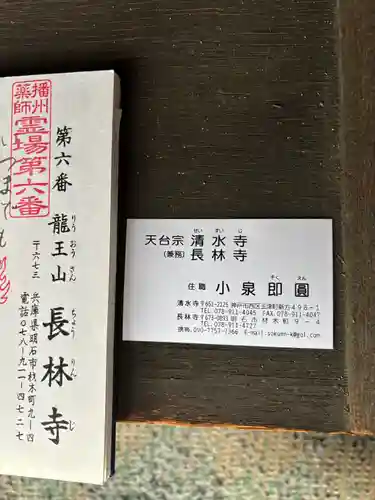 播州
薬師
霊場第六番
第六番
りゅうおうさん
龍王山
ちょうりんじ
長林寺
〒六七三
兵庫県明石市材木町九ー四
電話〇七八ー九一一ー四七二七
せいすいじ
天台宗 清水寺
(兼務) 長林寺
そく えん
住職 小泉即圓
清水寺 〒651-2125 神戸市西区玉津町新方498-1
TEL.078-911-4045 FAX.078-911-4047
長林寺 〒673-0893 明石市材木町9-4
TEL.078-911-4727